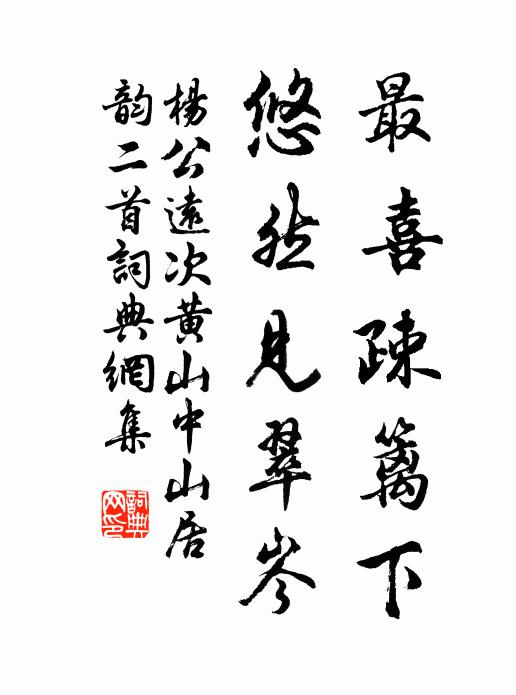 最喜疎籬下
悠然見翠岑
楊公遠次黄山中山居
韵二首詞典網集
詞典
网印